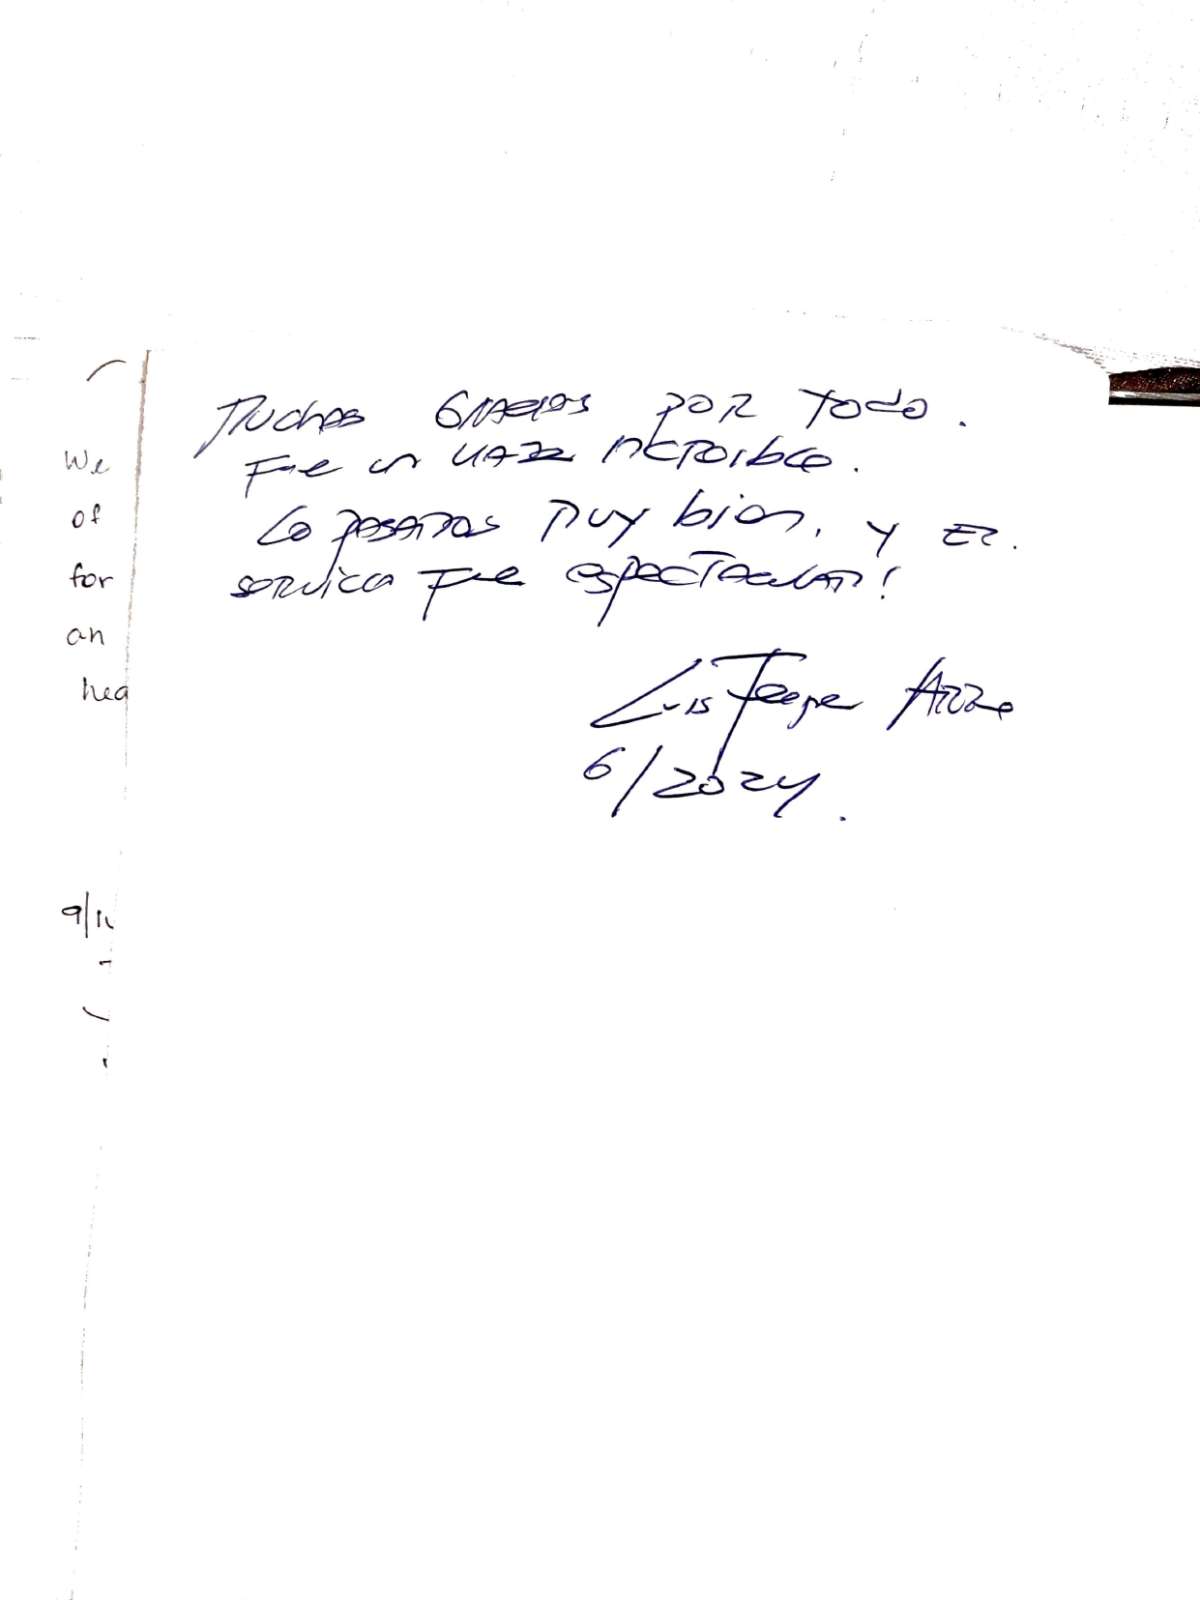 We
of
for
an
hea
9/1
Muchas Gracias por Todo.
Fue un viaje increible.
Lo pasamos muy bien, y el
servicio fue espectacular!
Luis Felipe
6/2024.